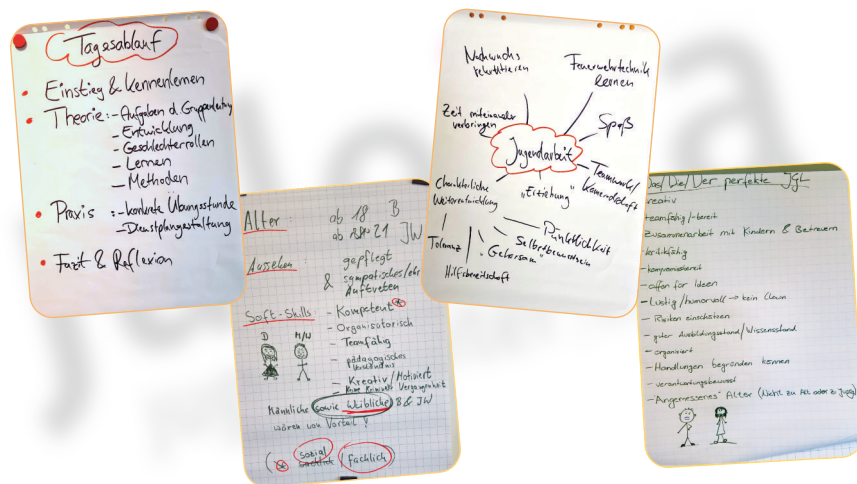 Tagesablauf
Einstieg & Kennenlernen
Theorie: - Aufgaben d. Gruppenleitung
- Entwicklung
- Geschlechterrollen
- Lernen
- Methoden
Praxis: - konkrete Übungsstunde
- Dienstplangestaltung
Fazit & Reflexion
Alter: ab 18 B
ab 21 JW
Aussehen: gepflegt
& sympatisches
Auftreten
Soft-Skills - Kompetent
- Organisatorisch
- Teamfähig
- pädagogisches
Verständnis
- Kreativ/Motiviert
- Keine Kriminelle Vergangenheit
D M/W
Männliche sowie Weibliche B & JW
wären von Vorteil
sozial
sachlich / fachlich
Nachwuchs
rekrutieren
Feuerwehrtechnik
lernen
Zeit miteinander
verbringen
Spaß
Jugendarbeit
Teamwork/
Kameradschaft
Charakterliche
Weiterentwicklung
"Erziehung"
Pünktlichkeit
Selbstbewusstsein
Toleranz
"Gehorsam"
Hilfsbereitschaft
Das/Die/Der perfekte JGL
kreativ
teamfähig/-bereit
Zusammenarbeit mit Kindern & Betreuern
kritikfähig
- kompromissbereit
- offen für Ideen
- Lustig/humorvoll → kein Clown
- Risiken einschätzen
- guter Ausbildungsstand/Wissensstand
- organisiert
- Handlungen begründen können
- verantwortungsbewusst
- Angemessenes Alter (Nicht zu Alt oder zu Jung)